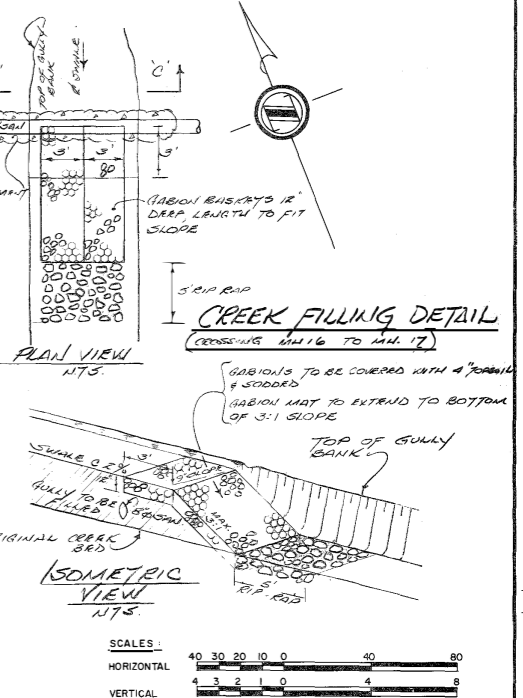 TOP OF GULLY
BANK
℄ SWALE
'C'
SAN
3' 3'
3'
GABION BASKETS 12"
DEEP, LENGTH TO FIT
SLOPE
5' RIP RAP
CREEK FILLING DETAIL
(CROSSING MH 16 TO MH. 17)
PLAN VIEW
NTS.
GABIONS TO BE COVERED WITH 4" TOPSOIL
& SODDED
GABION MAT TO EXTEND TO BOTTOM
OF 3:1 SLOPE
TOP OF GULLY
BANK
SWALE @ 2%
3'
12"
GULLY TO BE
FILLED
8" SAN.
MAX.
3:1
ORIGINAL CREEK
BED
5'
RIP-RAP
ISOMETRIC
VIEW
NTS.
SCALES:
HORIZONTAL
40 30 20 10 0 40 80
VERTICAL
4 3 2 1 0 4 8